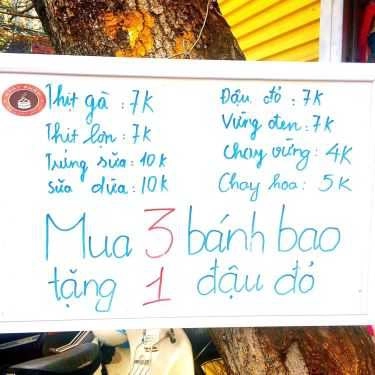 Thịt gà : 7K
Thịt lợn : 7K
Trứng sữa : 10K
Sữa dừa : 10K
Đậu đỏ : 7K
Vừng đen : 7K
Chay vừng : 4K
Chay hoa : 5K
Mua 3 bánh bao
tặng 1 đậu đỏ